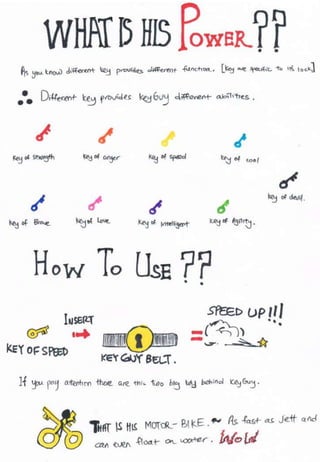 WHAT IS HIS POWER ??
As you know different key provides different function. [key are specific to its lock]
∴ Different key provides keyGuy different abilities.
Key of Strength
Key of anger
Key of Speed
key of cool
Key of devil.
Key of Brave
Key of Love
Key of Intelligent
Key of Agility.
HOW TO USE ??
SPEED UP!!!
INSERT
=
KEY OF SPEED
KEY GUY BELT.
If you pay attention there are this two big key behind KeyGuy.
THAT IS HIS MOTOR-BIKE. ~ As fast as Jett and
can even float on water.